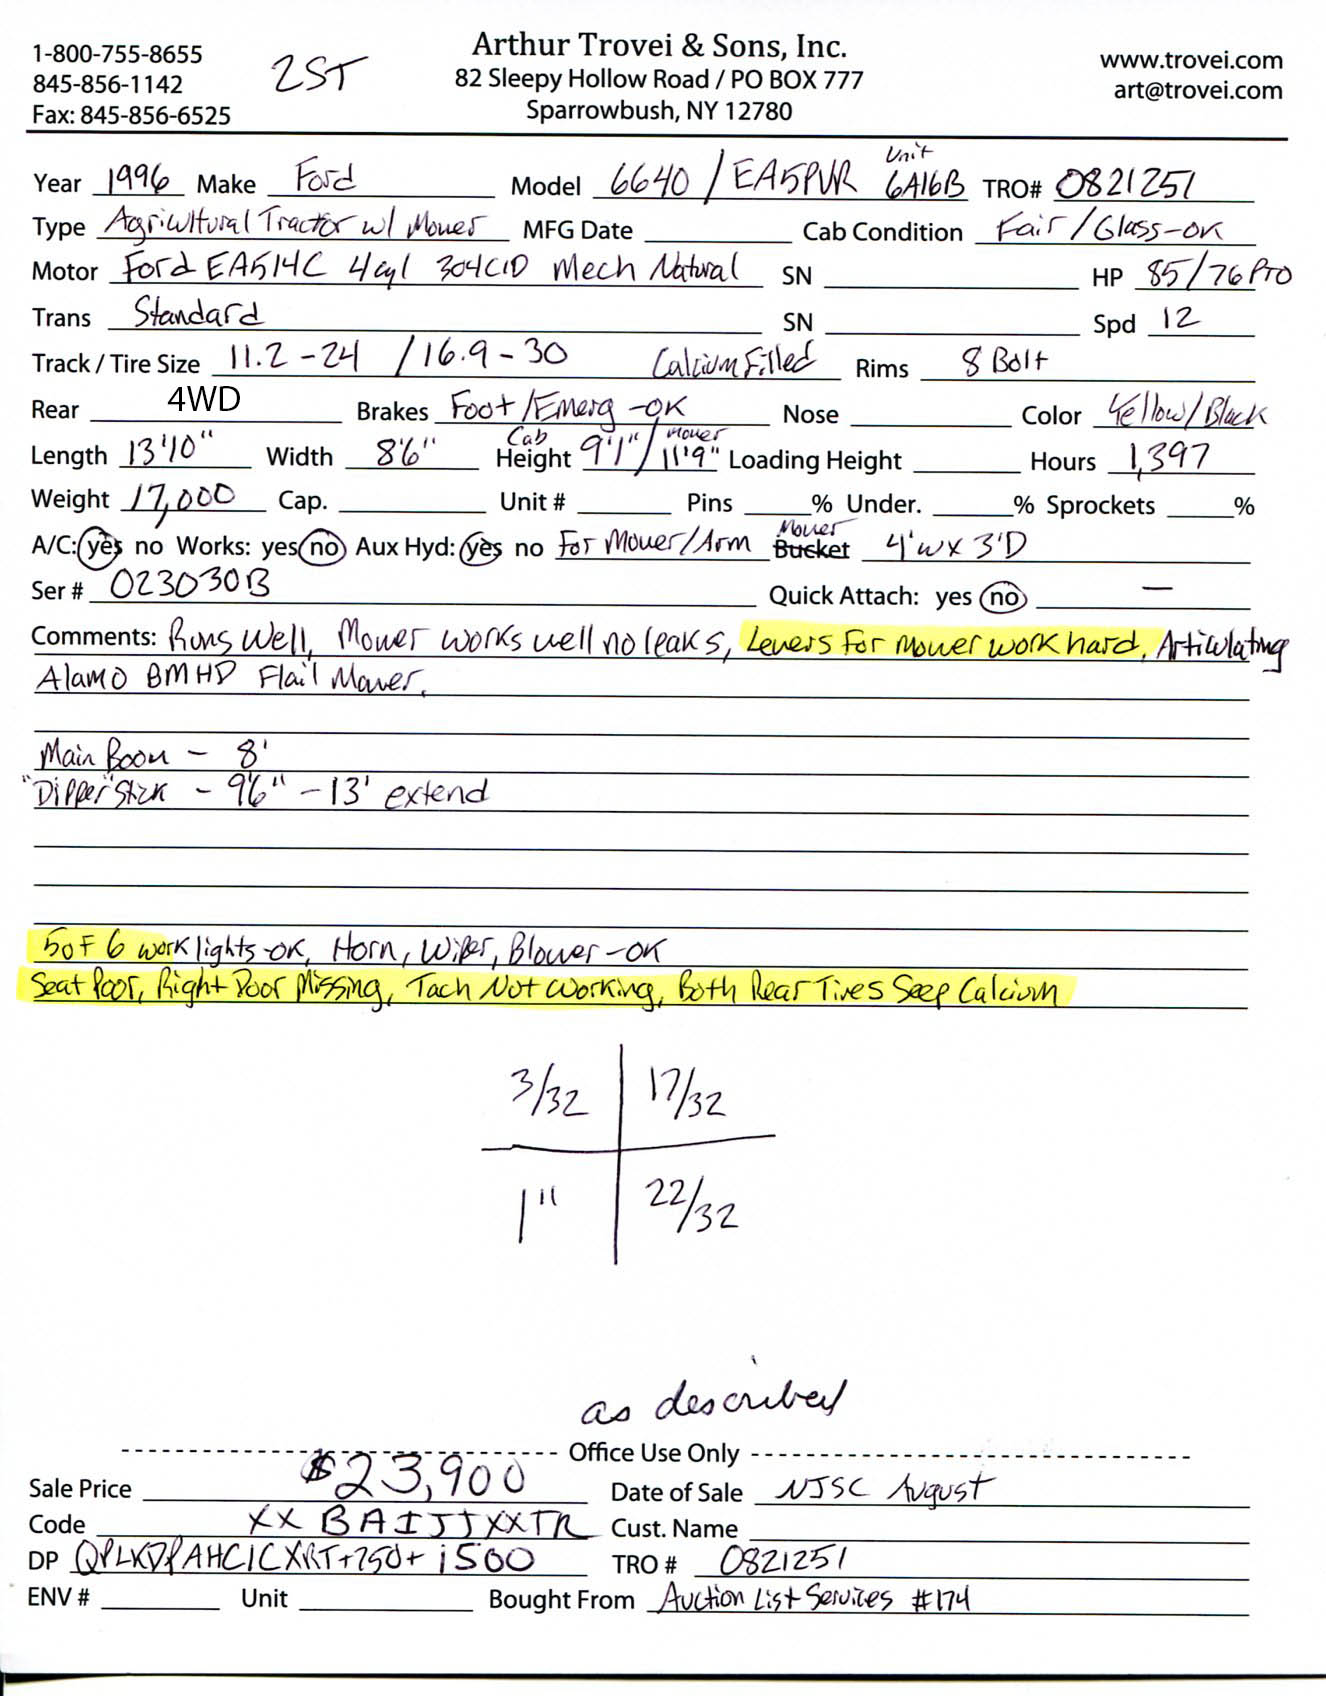 1-800-755-8655
845-856-1142
Fax: 845-856-6525
2ST
Arthur Trovei & Sons, Inc.
82 Sleepy Hollow Road / PO BOX 777
Sparrowbush, NY 12780
www.trovei.com
art@trovei.com
Year 1996 Make Ford Model 6640 / EA5PVR Unit 6A16B TRO# 0821251
Type Agricultural Tractor w/ Mower MFG Date Cab Condition Fair / Glass-OK
Motor Ford EA514C 4cyl 304CID Mech Natural SN HP 85/76 PTO
Trans Standard SN Spd 12
Track / Tire Size 11.2-24 / 16.9-30 Calcium Filled Rims 8 Bolt
Rear 4WD Brakes Foot/Emerg -OK Nose Color Yellow/Black
Length 13'10" Width 8'6" Cab Height 9'1" / Mower 11'9" Loading Height Hours 1,397
Weight 17,000 Cap. Unit # Pins % Under. % Sprockets %
A/C: yes no Works: yes no Aux Hyd: yes no For Mower/Arm Mower Bucket 4'w x 3'D
Ser # 023030B Quick Attach: yes no —
Comments: Runs Well, Mower works well no leaks, Levers For Mower work hard, Articulating
Alamo BMHD Flail Mower.
Main Boom - 8'
"Dipper" Stick - 9'6" - 13' extend
5 of 6 work lights-OK, Horn, Wiper, Blower-OK
Seat Poor, Right Door Missing, Tach Not Working, Both Rear Tires Seep Calcium
3/32 17/32
1" 22/32
as described
Office Use Only
Sale Price $23,900 Date of Sale NJSC August
Code XX BAIJJXXTR Cust. Name
DP QPLKDPAHCICXRT+750+1500 TRO # 0821251
ENV # Unit Bought From Auction List Services #174